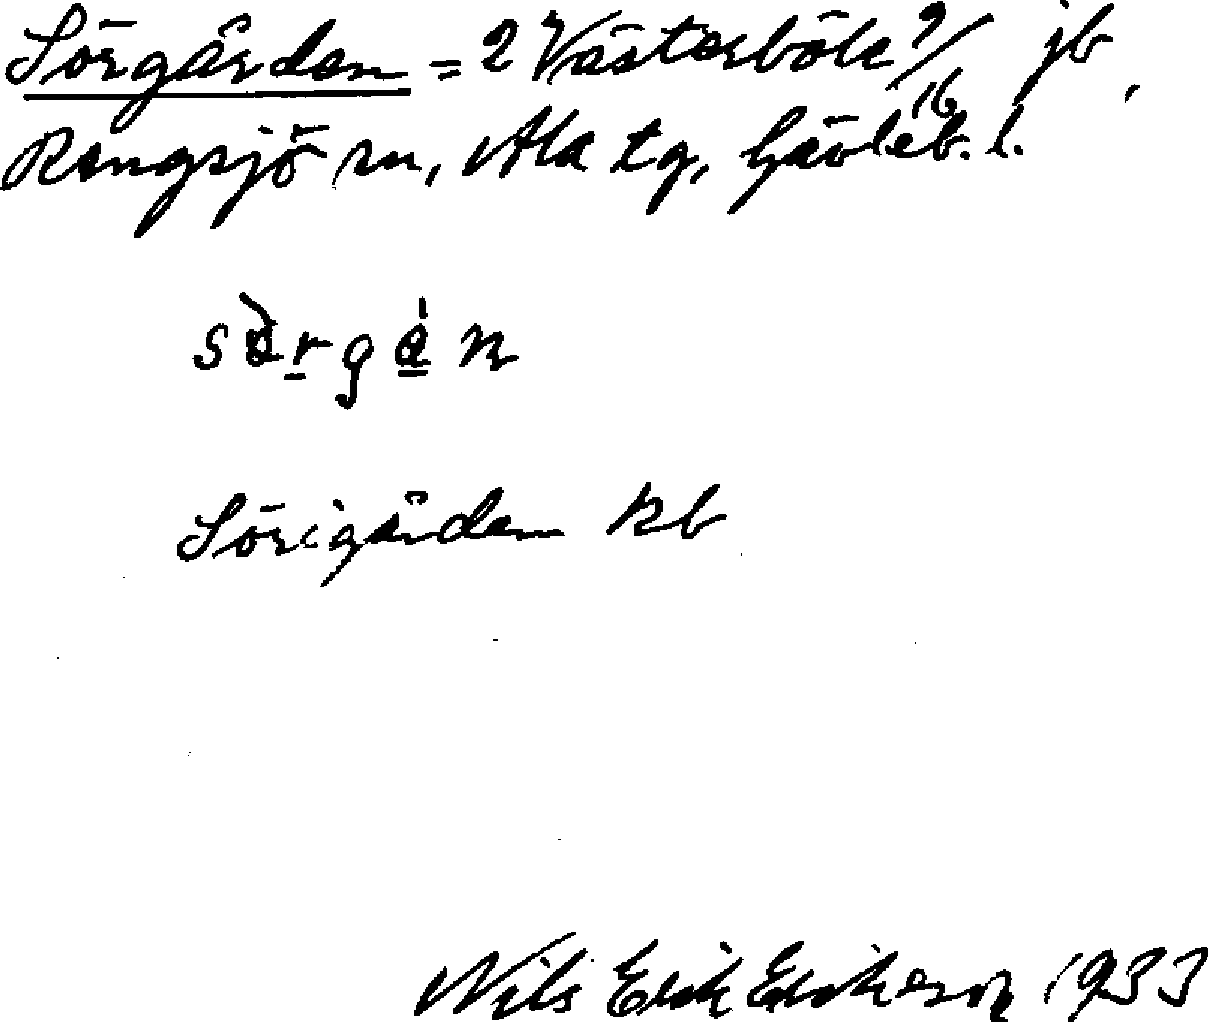 Sörgården = 2 Västerböle 9/16 jb,
Rengsjö sn, Ala tg, Gävleb. l.
sörgån
Sörigården kb
Nils Erik Erikson 1933